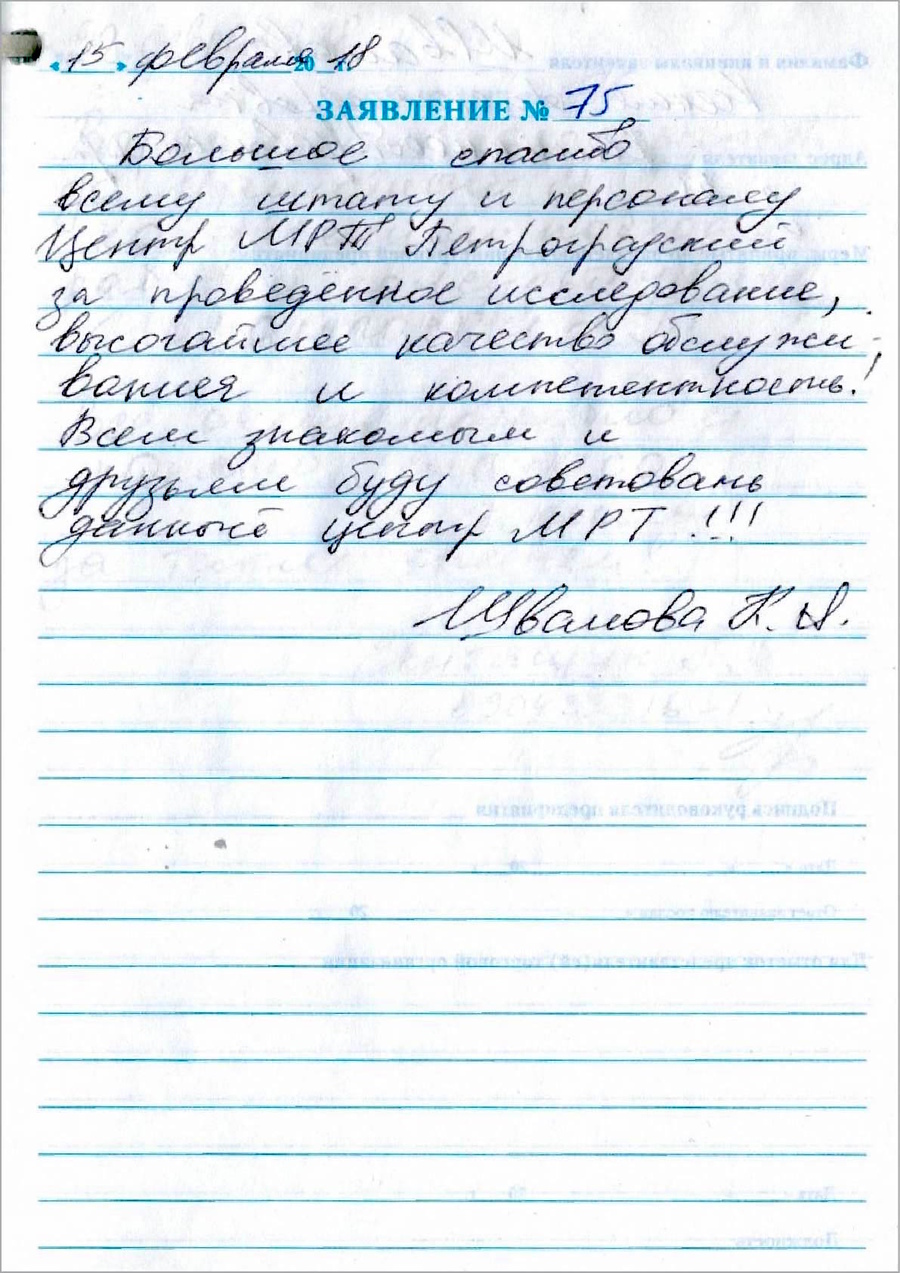 «15» февраля 2018 г.
ЗАЯВЛЕНИЕ № 75
Большое спасибо
всему штату и персоналу
Центр МРТ Петроградский
за проведённое исследование,
высочайшее качество обслужи-
вания и компетентность!
Всем знакомым и
друзьям буду советовать
данный центр МРТ !!!
Иванова К. А.
Подпись руководителя предприятия